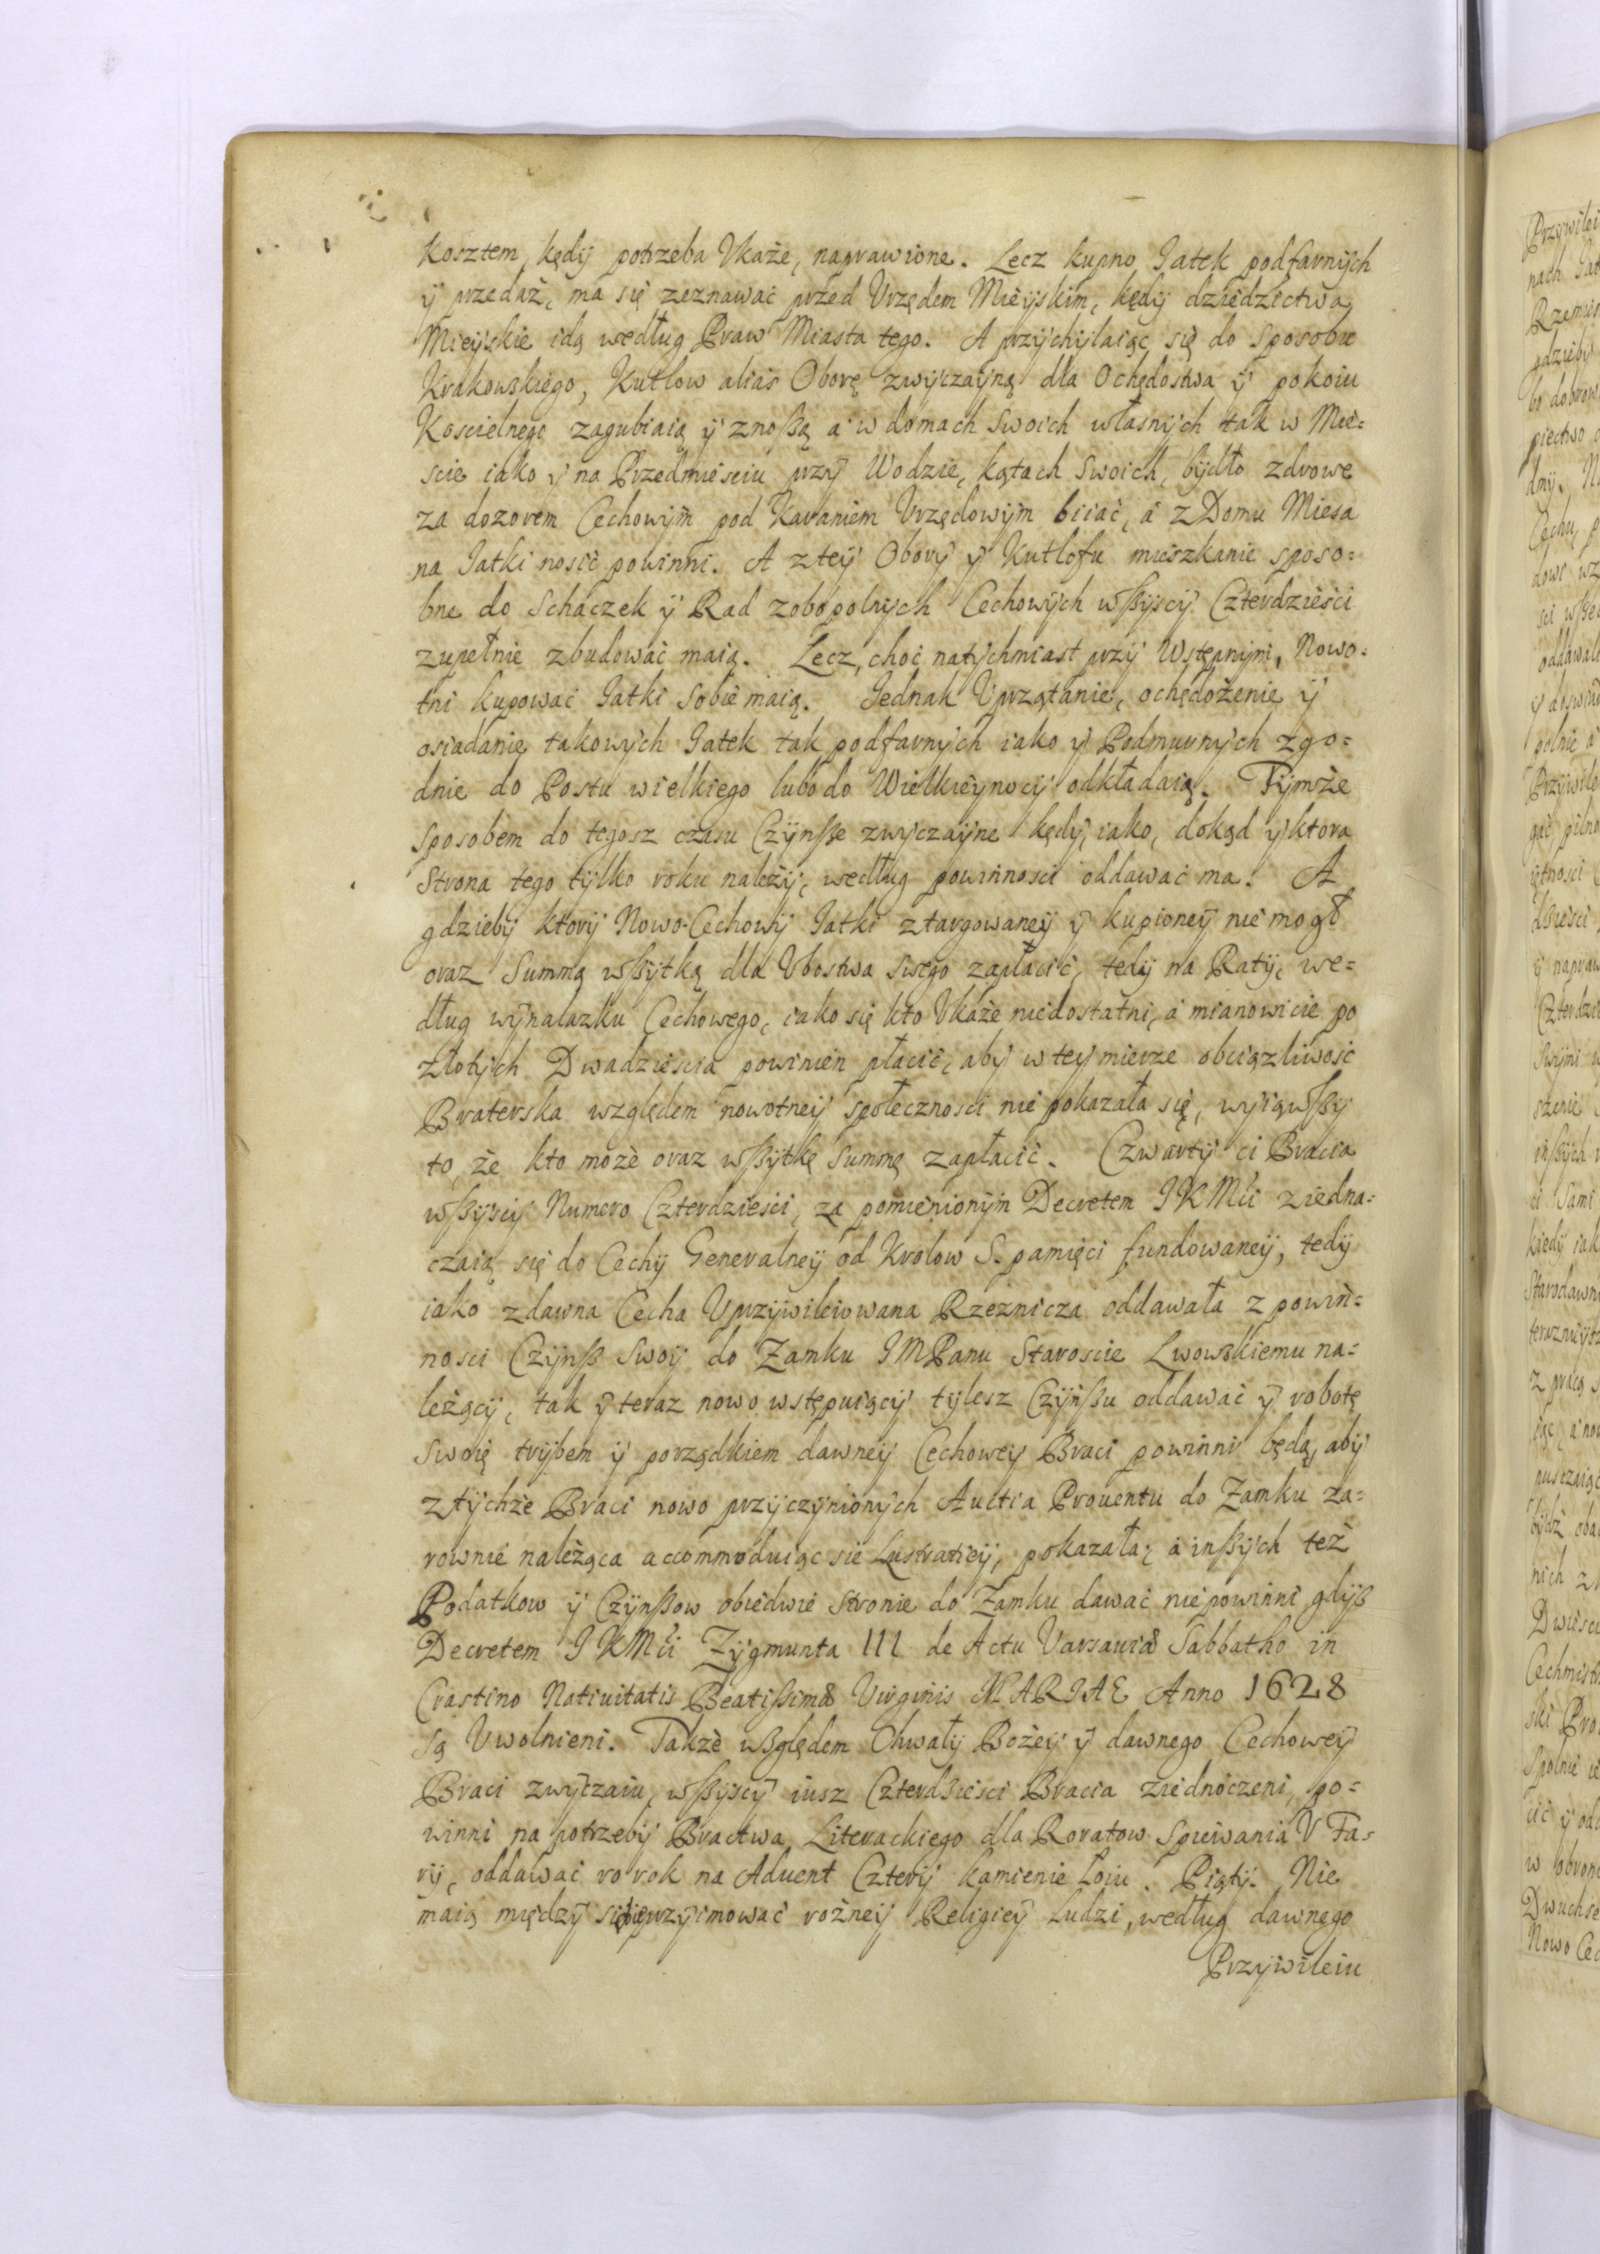 kosztem, kędy potrzeba Vkaże, naprawione. Lecz kupno Jatek podfarnych
y przedaż, ma się zeznawać przed Vrzędem Mieyskim, kędy dziedzictwa
Mieyskie idą według Praw Miasta tego. A przychylaiąc się do sposobu
Krakowskiego, Kutlow alias Oborę zwyczayną dla Ochędostwa y pokoiu
Koscielnego zagubiaią y znoßą a w domach swoich własnych tak w Mie=
scie iako y na Przedmiesciu przy Wodzie, kątach swoich, bydło zdrowe
za dozorem Cechowym pod Karaniem Vrzędowym biiać, a z Domu Miesa
na Jatki nosić powinni. A z tey Obory y Kutlofu mieszkanie sposo=
bne do Schaczek y Rad zobopolnych Cechowych wßyscy Czterdzieści
zupełnie zbudować maią. Lecz, choć natychmiast przy Wstępnym, Nowo=
tni kupować Jatki sobie maią. Jednak Vprzątanie, ochędożenie y
osiadanie takowych Jatek tak podfarnych iako y Podmurnych zgo=
dnie do Postu wielkiego lubo do Wielkieynocy odkładaią. Tymże
sposobem do tegosz czasu Czynße zwyczayne kędy, iako, dokąd y ktora
Strona tego tylko roku należy, według powinności oddawać ma. A
gdzieby ktory Nowo-Cechowy Jatki ztargowaney y kupioney nie mogł
oraz Summą wßytką dla Vbostwa swego zapłacić, tedy na Raty, we=
dług wynalazku Cechowego, iako się kto Vkaże niedostatni, a mianowicie po
złotych Dwadziescia powinien płacić, aby w tey mierze obciązliwość
Braterska względem nowotney społeczności nie pokazała się, wyiąwßy
to, że kto może oraz wßytkę Summę zapłacić. Czwarty ci Bracia
wßyscy Numero Czterdzieści, za pomienionym Decretem JKMći ziedna=
czaią się do Cechy Generalney od Krolow S. pamięci fundowaney, tedy
iako zdawna Cecha Vprzywileiowana Rzeznicza oddawała z powin=
ności Czynß swoy do Zamku JMPanu Staroscie Lwowskiemu na=
leżący, tak y teraz nowo wstępuiący tylesz Czynßu oddawać y robotę
swoię trybem y porządkiem dawney Cechowey Braci powinni będą, aby
z tychże Braci nowo przyczynionych Auctia Prouentu do Zamku za=
rownie należąca accommoduiąc sie Lustratiey, pokazała, a inßych też
Podatkow y Czynßow obiedwie stronie do Zamku dawać nie powinni gdyß
Decretem JKMći Zygmunta III de Actu Varsauiæ Sabbatho in
Crastino Natiuitatis Beatißimæ Virginis MARIAE Anno 1628
są Vwolnieni. Także wßględem Chwały Bożey y dawnego Cechowey
Braci zwyczaiu, wßyscy iusz Czterdzieści Bracia ziednoczeni, po=
winni na potrzeby Bractwa Literackiego dla Roratow Spiewania V Fa=
ry, oddawać rorok na Aduent Cztery kamienie Łoiu. Piąty. Nie
maią między przyimować rożney Religiey Ludzi, według dawnego
Przywileiu